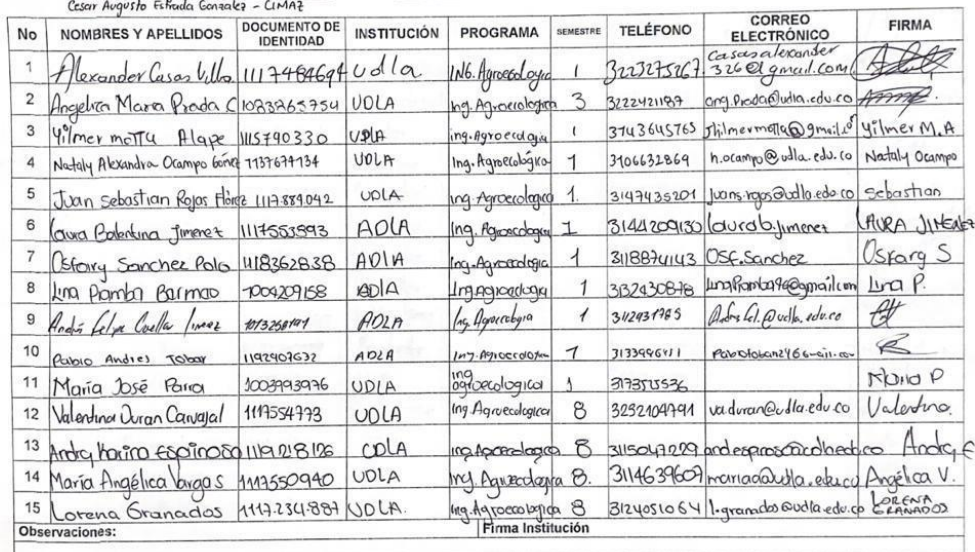 Cesar Augusto Estrada Gonzalez - CIMAZ
No NOMBRES Y APELLIDOS DOCUMENTO DE IDENTIDAD INSTITUCIÓN PROGRAMA SEMESTRE TELÉFONO CORREO ELECTRÓNICO FIRMA
1 Alexander Casas Villa 1117484694 Udla ING. Agroecologia 1 3223275267 Casasalexander326@gmail.com
2 Angelica Maria Prada C 1083865754 UDLA Ing. Agroecologica 3 3222421187 ang.Prada@udla.edu.co
3 Yilmer motta Alape 1115790330 UDLA ing. agroecologia 1 3143645765 Yilmer M.A
4 Nataly Alexandra Ocampo 1137674134 UDLA Ing. Agroecológica 1 3106632869 n.ocampo@udla.edu.co Nataly Ocampo
5 Juan Sebastian Rojas 1117889042 UDLA ing. Agroecologica 1. 3147435201 Juans.rojas@udla.edu.co Sebastian
6 Laura Balentina Jimenez 1117553893 ADLA Ing. Agroecologica 1 3144209130 laurab.jimenez LAURA JIMENEZ
7 Osfary Sanchez Polo 1118362838 ADLA Ing. Agroecologia 1 3118874143 Osf.Sanchez Osfary S
8 Lina Piamba Burmao 1004209158 ADLA Ing Agroecologia 1 3132430878 Lina P.
9 Andrés Felipe Cuellar ADLA Ing. Agroecologia 1 3112931785
10 Pablo Andres Tobar 1192907632 ADLA Ing. Agroecologia 1
11 María José Parra 1003993976 UDLA ing agroecologica 1 Maria P
12 Valentina Duran Carvajal 1117554773 UDLA Ing Agroecologica 8 3252104791 va.duran@udla.edu.co Valentina.
13 Andry Karina Espinosa 1119218126 UDLA ing Agroecologica 8 3115047229 Andry E
14 María Angélica Vargas 1117550940 UDLA ing. Agroecologia 8. 3114639607 Angélica V.
15 Lorena Granados 1117.234.887 UDLA. ing. Agroecologica 8 3124051064 l.granados@udla.edu.co LORENA GRANADOS
Observaciones: Firma Institución